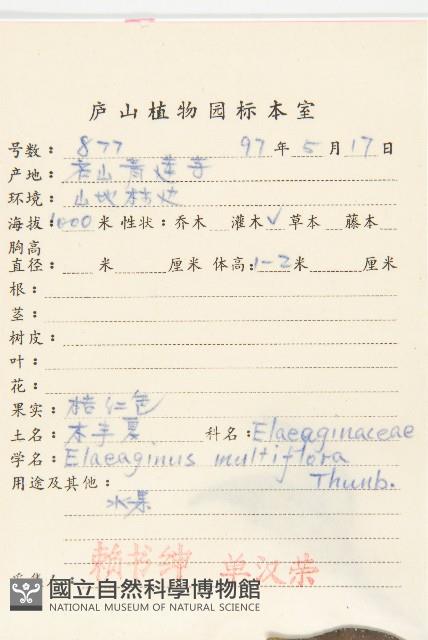 庐山植物园标本室
号数: 877 97年5月17日
产地: 山青莲寺
环境: 山地林边
海拔: 1000米 性状: 乔木 灌木√ 草本 藤本
胸高直径: 米 厘米 体高: 1-2米 厘米
根:
茎:
树皮:
叶:
花:
果实: 桔红色
土名: 木半夏 科名: Elaeaginaceae
学名: Elaeaginus multiflora
Thunb.
用途及其他:
水果
赖书绅 单汉荣
國立自然科學博物館
NATIONAL MUSEUM OF NATURAL SCIENCE